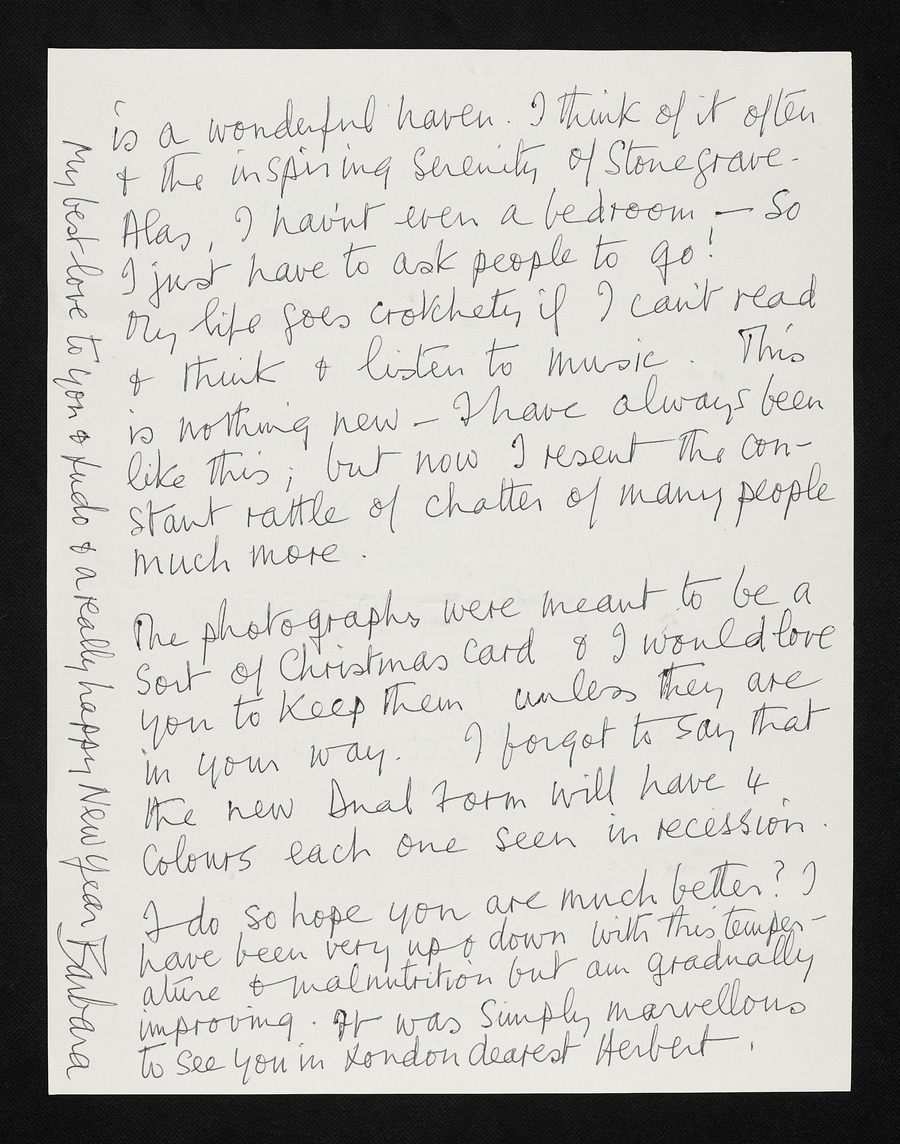 is a wonderful haven. I think of it often
& the inspiring serenity of Stonegrave.
Alas, I hav'nt even a bedroom — so
I just have to ask people to go!
My life goes crotchety if I can't read
& think & listen to music. This
is nothing new — I have always been
like this; but now I resent the con-
stant rattle of chatter of many people
much more.
The photographs were meant to be a
sort of Christmas card & I would love
you to keep them unless they are
in your way. I forgot to say that
the new Dual Form will have 4
colours each one seen in recession.
I do so hope you are much better? I
have been very up & down with this temper-
ature & malnutrition but am gradually
improving. It was simply marvellous
to see you in London dearest Herbert.
My best love to you & Ludo & a really happy New Year Barbara